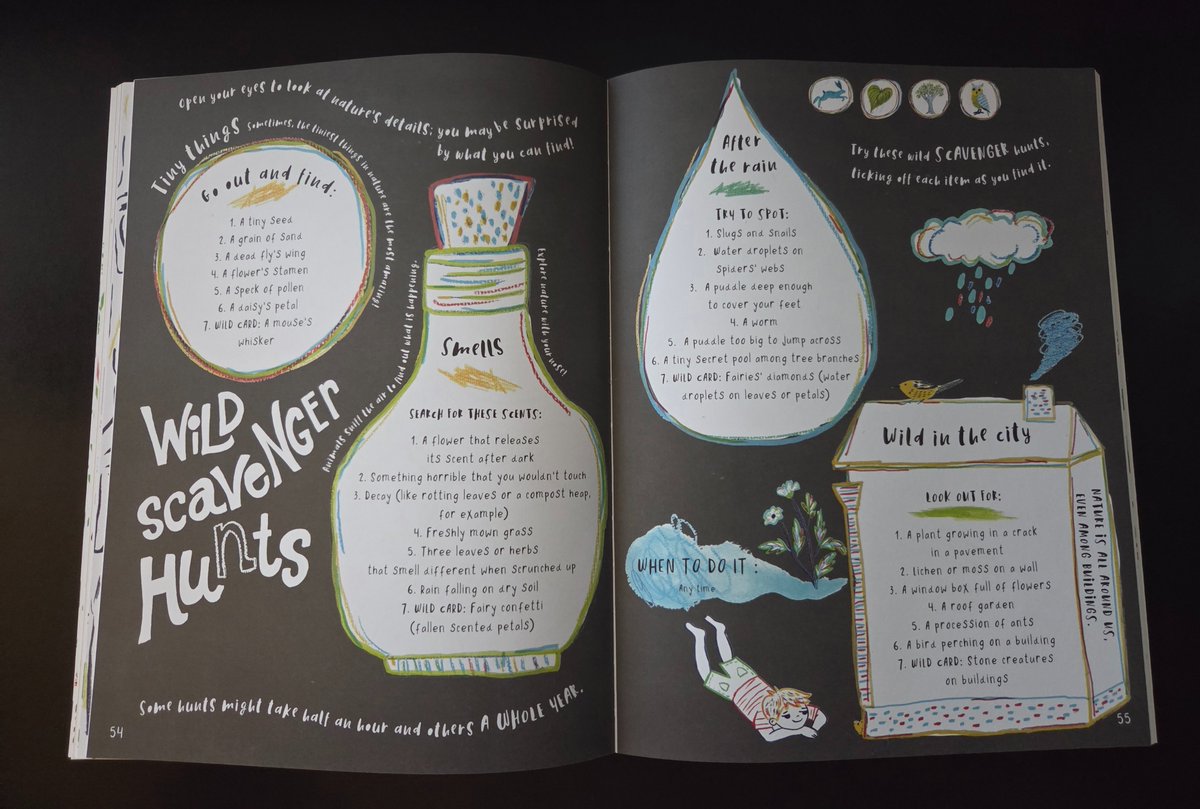 Open your eyes to look at nature's details; you may be surprised
by what you can find!
Tiny things Sometimes, the tiniest things in nature are the most amazing!
Go out and find:
1. A tiny Seed
2. A grain of Sand
3. A dead fly's wing
4. A flower's Stamen
5. A Speck of pollen
6. A daisy's petal
7. WILD CARD: A mouse's
whisker
WILD
SCAVENGER
HUNTS
Animals sniff the air to find out what is happening.
Explore nature with your nose!
Smells
SEARCH FOR THESE SCENTS:
1. A flower that releases
its scent after dark
2. Something horrible that you wouldn't touch
3. Decay (like rotting leaves or a compost heap,
for example)
4. Freshly mown grass
5. Three leaves or herbs
that smell different when scrunched up
6. Rain falling on dry Soil
7. WILD CARD: Fairy confetti
(fallen scented petals)
Some hunts might take half an hour and others A WHOLE YEAR.
54
After
the rain
TRY TO SPOT:
1. Slugs and Snails
2. Water droplets on
Spiders' webs
3. A puddle deep enough
to cover your feet
4. A worm
5. A puddle too big to jump across
6. A tiny Secret pool among tree branches
7. WILD CARD: Fairies' diamonds (water
droplets on leaves or petals)
Try these wild SCAVENGER hunts,
ticking off each item as you find it.
WHEN TO DO IT:
Any time
Wild in the city
LOOK OUT FOR:
1. A plant growing in a crack
in a pavement
2. Lichen or moss on a wall
3. A window box full of flowers
4. A roof garden
5. A procession of ants
6. A bird perching on a building
7. WILD CARD: Stone creatures
on buildings
NATURE IS ALL AROUND US,
EVEN AMONG BUILDINGS.
55